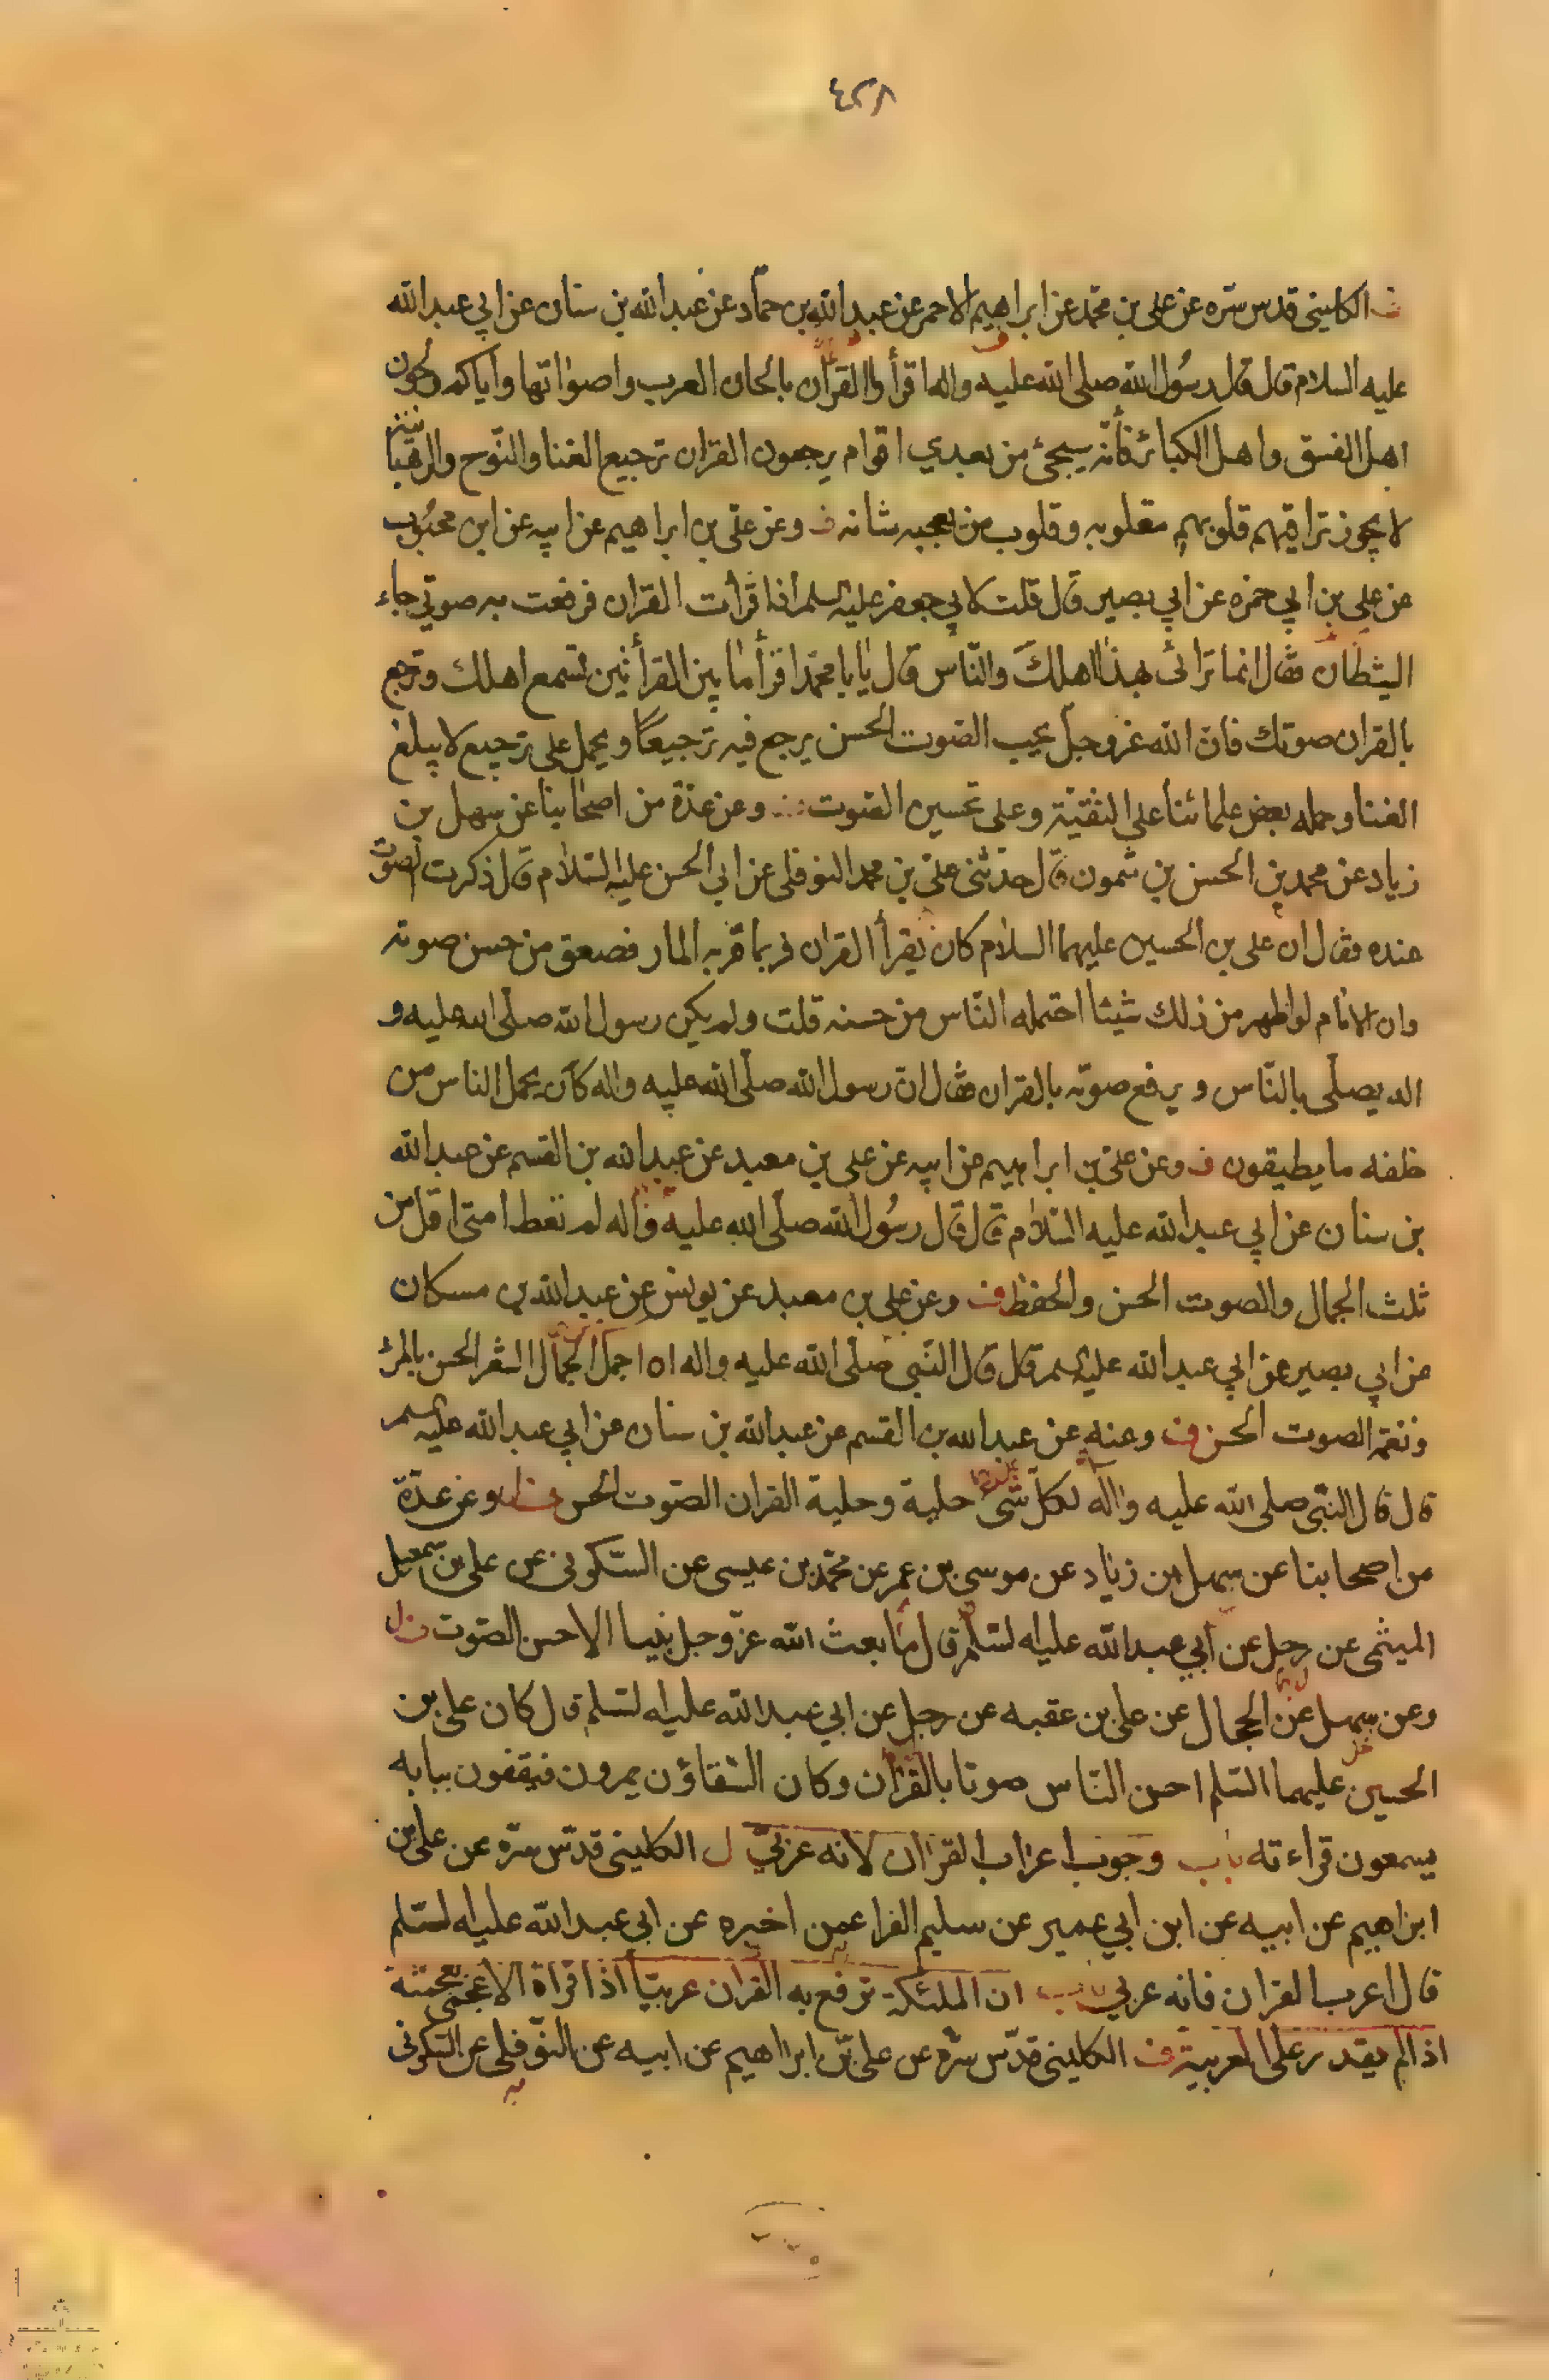 ٤٢٨
ف الكليني قدس سره عن علي بن محمد عن ابراهيم الاحمر عن عبد الله بن حماد عن عبد الله بن سنان عن ابي عبد الله
عليه السلام قال قال رسول الله صلى الله عليه واله اقرأوا القرآن بالحان العرب واصواتها واياكم ولحون
اهل الفسق واهل الكبائر فأنه سيجئ من بعدي اقوام يرجعون القران ترجيع الغنا والنوح والرهبانية
لا يجوز تراقيهم قلوبهم مقلوبه وقلوب من يعجبه شانه ف وعن علي بن ابراهيم عن ابيه عن ابن محبوب
عن علي بن ابي حمزه عن ابي بصير قال قلت لابي جعفر عليه السلم اذا قرأت القران فرفعت به صوتي جاء
الشيطان فقال انما ترائى بهذا اهلك والناس قال يا با محمد اقرأ ما بين القرأتين تسمع اهلك وترجع
بالقران صوتك فان الله عز وجل يحب الصوت الحسن يرجع فيه ترجيعا ويحمل على ترجيع لا يبلغ
الغنا وحمله بعض علمائنا على التقية وعلى تحسين الصوت وعن عدة من اصحابنا عن سهل بن
زياد عن محمد بن الحسن بن شمون قال حدثني علي بن محمد النوفلي عن ابي الحسن عليه السلام قال ذكرت الصوت
عنده فقال ان علي بن الحسين عليهما السلام كان يقرأ القران فربما مر به المار فصعق من حسن صوته
وان الامام لو اظهر من ذلك شيئا احتمله الناس من حسنه قلت ولم يكن رسول الله صلى الله عليه و
اله يصلي بالناس ويرفع صوته بالقران فقال ان رسول الله صلى الله عليه واله كان يحمل الناس من
خلفه ما يطيقون ف وعن علي بن ابراهيم عن ابيه عن علي بن معبد عن عبد الله بن القسم عن عبد الله
بن سنان عن ابي عبد الله عليه السلام قال قال رسول الله صلى الله عليه وآله لم تعط امتي اقل من
ثلث الجمال والصوت الحسن والحفظ ف وعن علي بن معبد عن يونس عن عبد الله بن مسكان
عن ابي بصير عن ابي عبد الله عليه السلم قال قال النبي صلى الله عليه واله اجمل الجمال الشعر الحسن
ونغمة الصوت الحسن ف وعنه عن عبد الله بن القسم عن عبد الله بن سنان عن ابي عبد الله عليه السلم
قال قال النبي صلى الله عليه وآله لكل شئ حلية وحلية القران الصوت الحسن وعن عدة
من اصحابنا عن سهل بن زياد عن موسى بن عمر عن محمد بن عيسى عن السكوني عن علي بن اسمعيل
الميثمي عن رجل عن أبي عبد الله عليه السلم قال ما بعث الله عز وجل نبيا الا حسن الصوت
وعن سهل عن الحجال عن علي بن عقبه عن رجل عن ابي عبد الله عليه السلم قال كان علي بن
الحسين عليهما السلم احسن الناس صوتا بالقران وكان السقاؤن يمرون فيقفون ببابه
يسمعون قراءته باب وجوب اعراب القران لانه عربي ل الكليني قدس سره عن علي بن
ابراهيم عن ابيه عن ابن ابي عمير عن سليم الفرا عمن اخبره عن ابي عبد الله عليه السلم
قال اعرب القران فانه عربي باب ان الملئكة ترفع به القران عربيا اذا قراة الاعجمي بعجميته
اذا لم يقدر على العربية ف الكليني قدس سره عن علي بن ابراهيم عن ابيه عن النوفلي عن السكوني